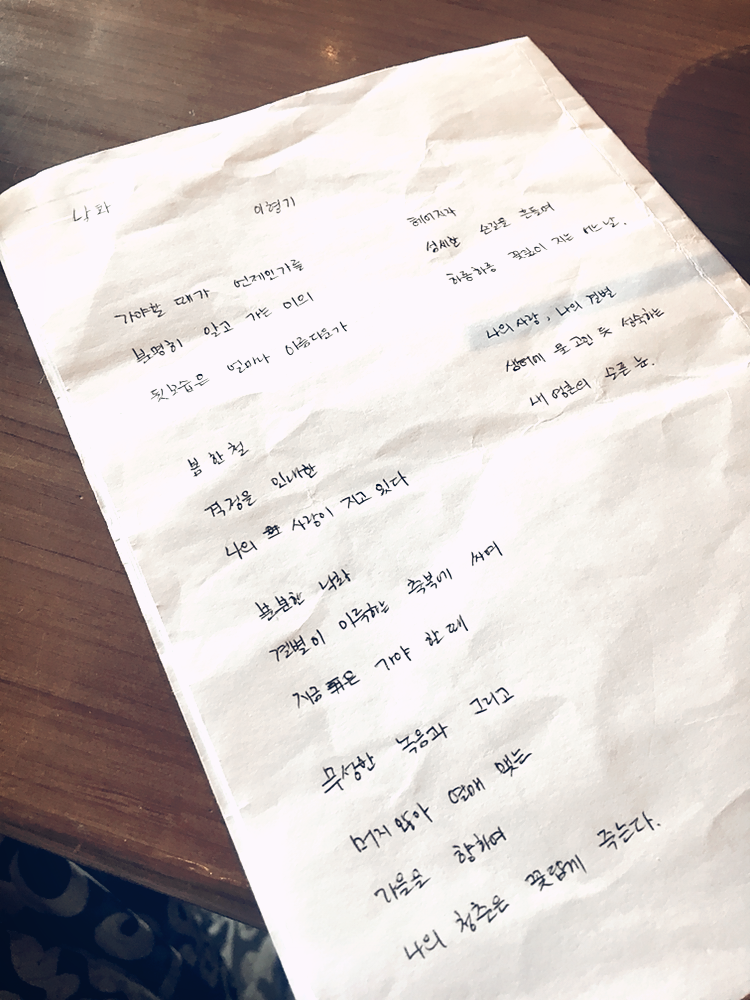 낙화 이형기
가야할 때가 언제인가를
분명히 알고 가는 이의
뒷모습은 얼마나 아름다운가
봄 한 철
격정을 인내한
나의 사랑이 지고 있다
분분한 낙화
결별이 이룩하는 축복에 싸여
지금은 가야 할 때
무성한 녹음과 그리고
머지않아 열매 맺는
가을을 향하여
나의 청춘은 꽃답게 죽는다.
헤어지자
섬세한 손길을 흔들며
하롱하롱 꽃잎이 지는 어느날.
나의 사랑, 나의 결별
샘터에 물 고인 듯 성숙하는
내 영혼의 슬픈 눈.